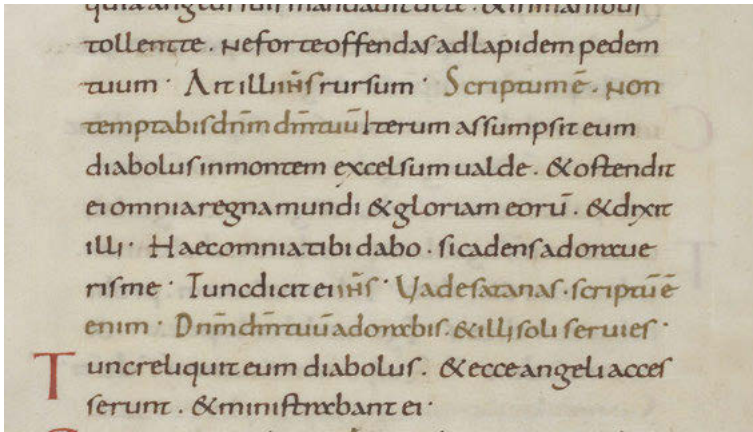 quia angelis suis mandavit de te. & in manibus
tollent te. Ne forte offendas ad lapidem pedem
tuum. Ait illi ih̄s rursum. Scriptum ē. Non
temptabis dn̄m dm̄ tuū Iterum assumpsit eum
diabolus in montem excelsum ualde. & ostendit
ei omnia regna mundi & gloriam eorū. & dixit
illi. Haec omnia tibi dabo. si cadens adoraue
ris me. Tunc dicit ei ih̄s. Uade satanas. scriptū ē
enim. Dn̄m dm̄ tuū adorabis. & illi soli seruies.
Tunc reliquit eum diabolus. & ecce angeli acces
serunt. & ministrabant ei.